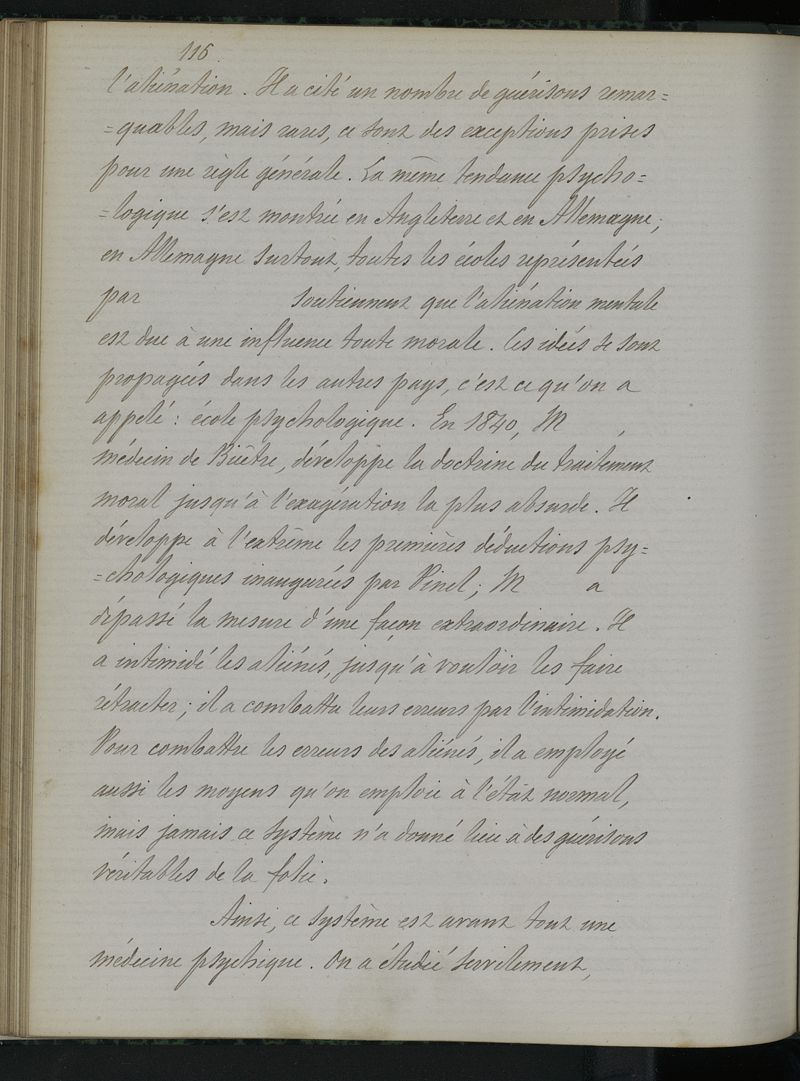 116.
l'aliénation. Il a cité un nombre de guérisons remar=
=quables, mais rares, ce sont des exceptions prises
pour une règle générale. La même tendance psycho=
=logique s'est montrée en Angleterre et en Allemagne;
en Allemagne surtout, toutes les écoles représentées
par soutiennent que l'aliénation mentale
est due à une influence toute morale. Ces idées se sont
propagées dans les autres pays, c'est ce qu'on a
appelé : école psychologique. En 1840, M ,
médecin de Bicêtre, développe la doctrine du traitement
moral jusqu'à l'exagération la plus absurde. Il
développe à l'extrême les premières déductions psy=
=chologiques inaugurées par Pinel; M a
dépassé la mesure d'une façon extraordinaire. Il
a intimidé les aliénés, jusqu'à vouloir les faire
rétracter; il a combattu leurs erreurs par l'intimidation.
Pour combattre les erreurs des aliénés, il a employé
aussi les moyens qu'on emploie à l'état normal,
mais jamais ce système n'a donné lieu à des guérisons
véritables de la folie.
Ainsi, ce système est avant tout une
médecine psychique. On a étudié servilement,